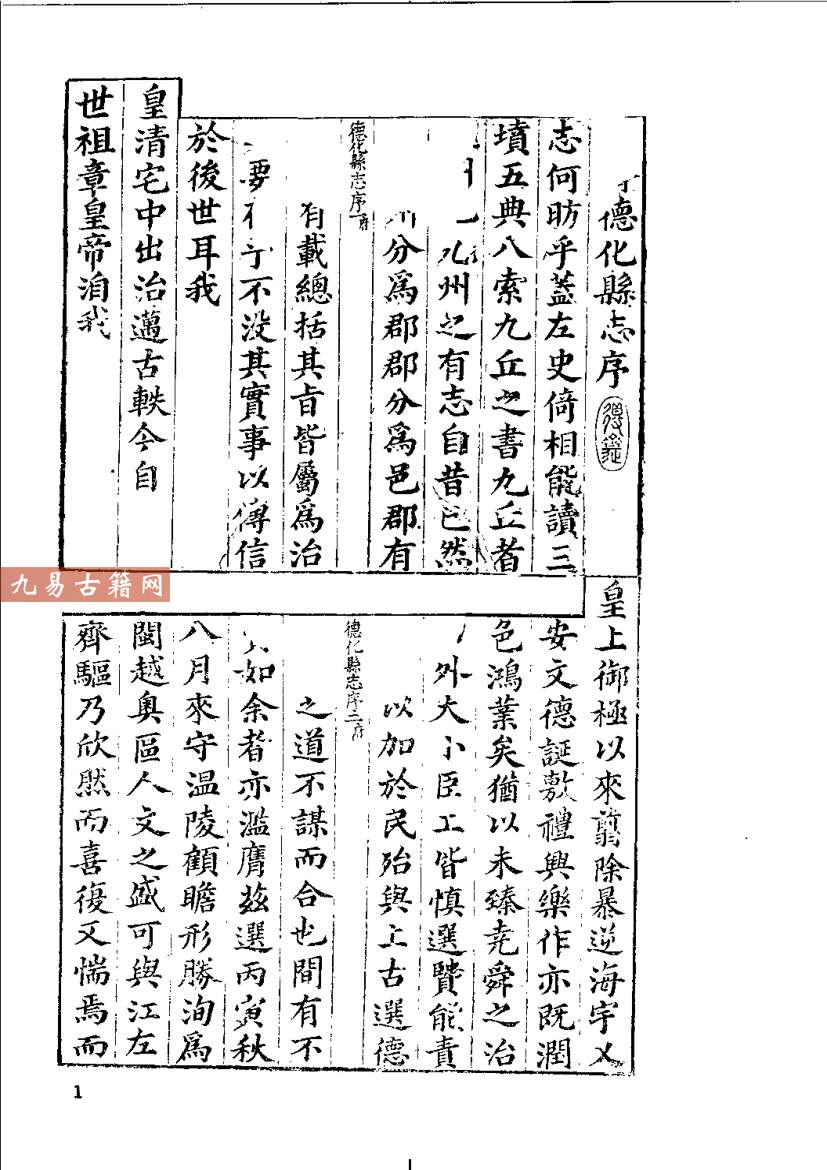 德化縣志序
志何昉乎蓋左史倚相能讀三
墳五典八索九丘之書九丘者
九州之有志自昔已然
德化縣志序
分為郡郡分為邑郡有
有載總括其旨皆屬為治
要 不没其實事以傳信
於後世耳我
皇清宅中出治邁古軼今自
世祖章皇帝洎我
皇上御極以來翦除暴逆海宇乂
安文德誕敷禮興樂作亦既潤
色鴻業矣猶以未臻堯舜之治
外大小臣工皆慎選賢能責
以加於民殆與上古選德
德化縣志序二
之道不謀而合也間有不
如余者亦濫膺茲選丙寅秋
八月來守温陵顧瞻形勝洵為
閩越奥區人文之盛可與江左
齊驅乃欣然而喜復又惴焉而
九易古籍网
1